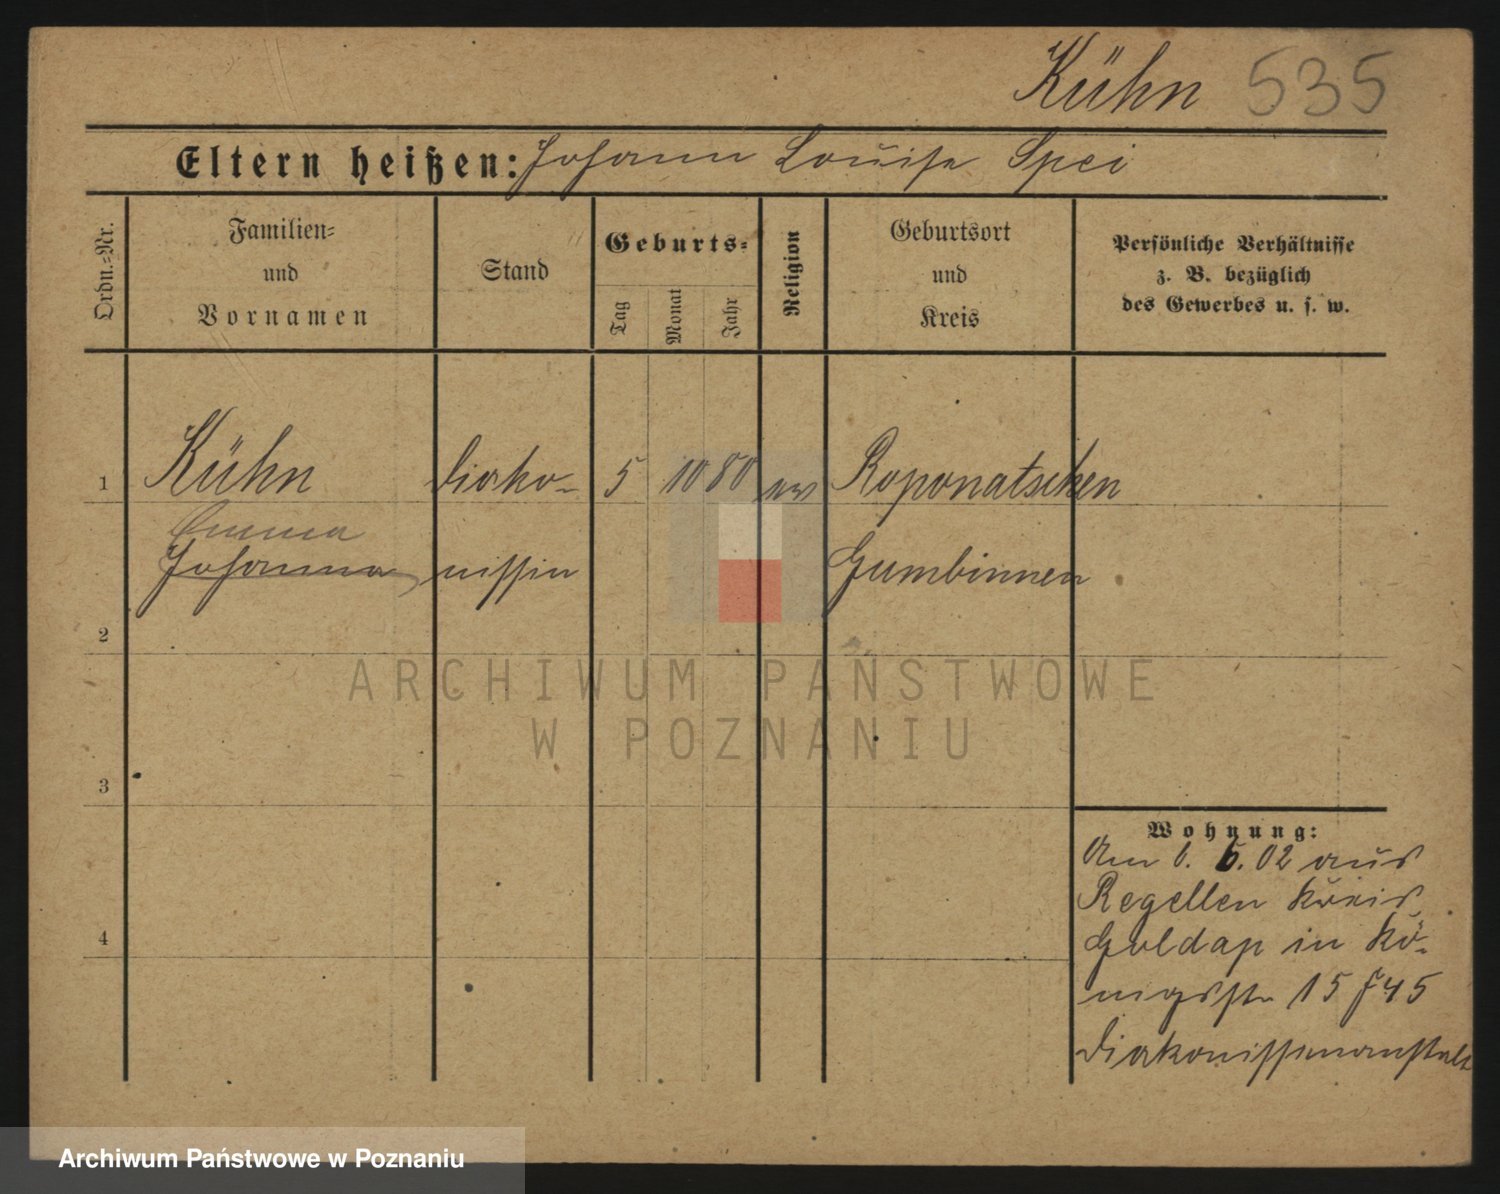 Kühn 535
Eltern heißen: Johann Louise Spei
Ordn.-Nr.
Familien-
und
Vornamen
Stand
Geburts-
Tag
Monat
Jahr
Religion
Geburtsort
und
Kreis
Persönliche Verhältnisse
z. B. bezüglich
des Gewerbes u. s. w.
1 Kühn Diako- 5 10 80 ev Roponatschen
Emma
Johanna nissin Gumbinnen
2
ARCHIWUM PAŃSTWOWE
W POZNANIU
3
Wohnung:
Am 6. 6. 02 aus
Regellen Kreis
4
Goldap in Kö-
nigsstr 15 F 45
Diakonissenanstalt
Archiwum Państwowe w Poznaniu